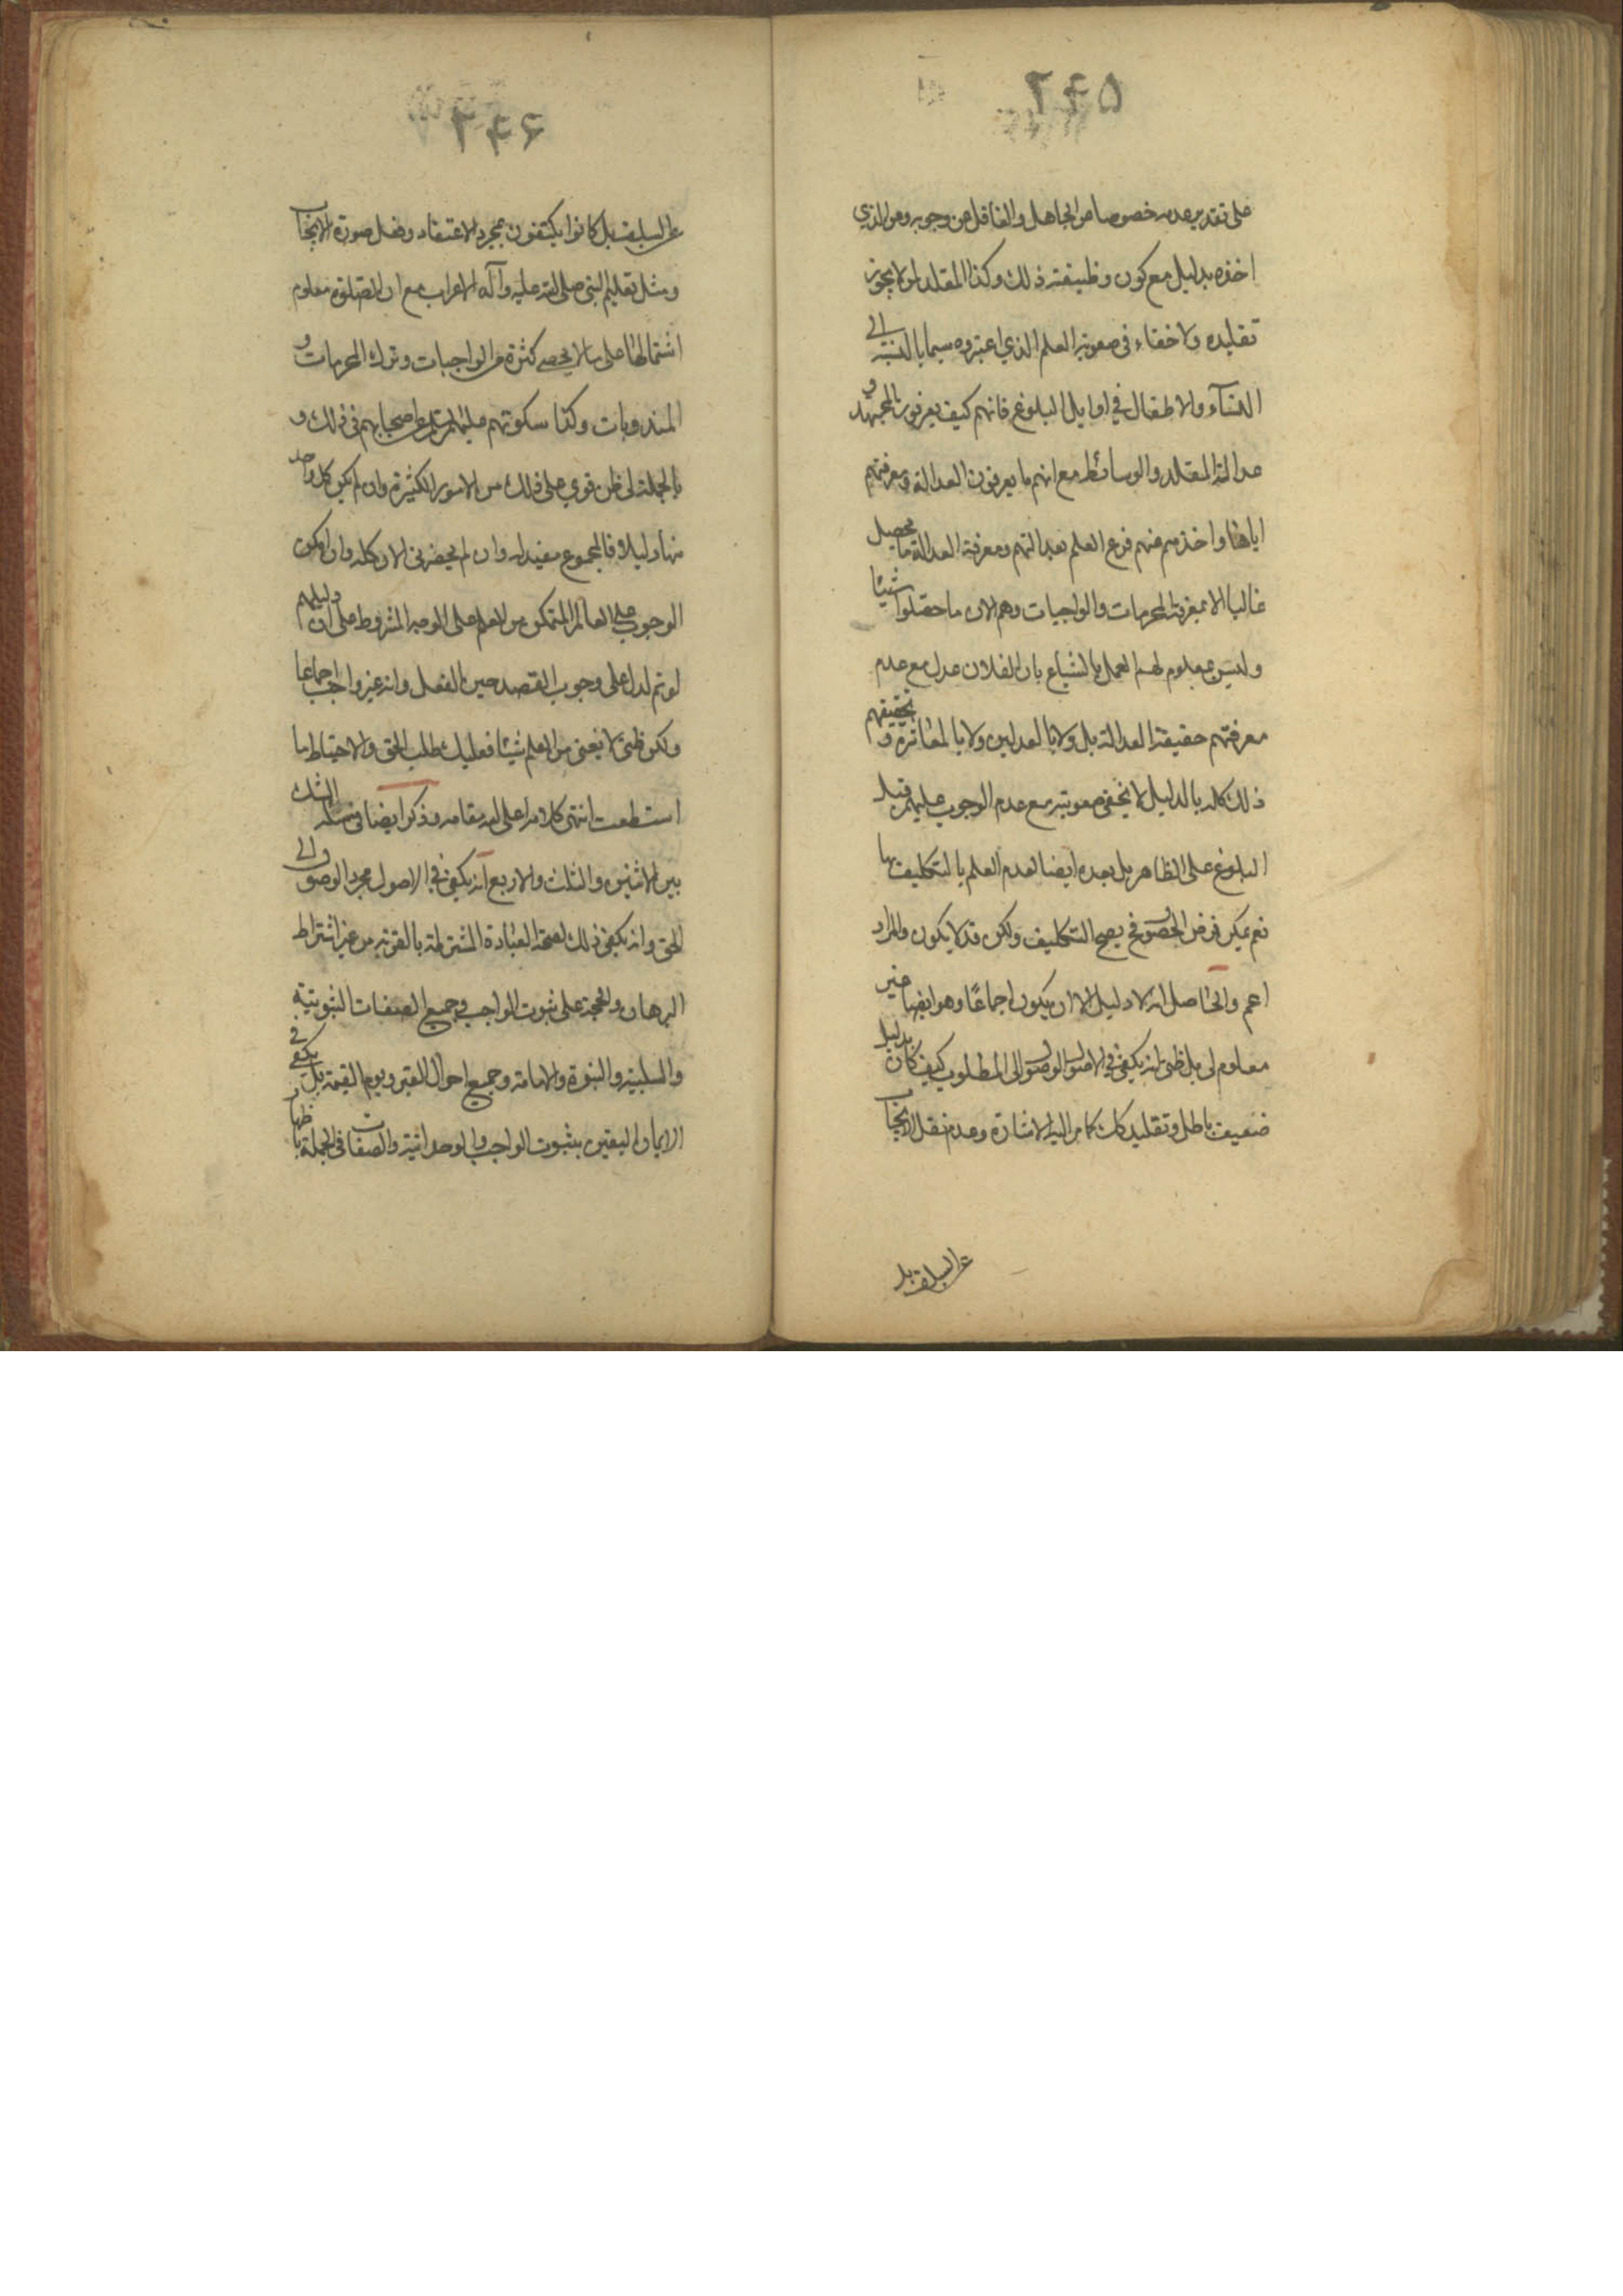 ٢٤٥
على تقدير عدمه خصوصا من الجاهل والغافل عن وجوبه ومن الذي
اخذه بدليل مع كون وظيفته ذلك وكذا المقلد لمن لا يجوز
تقليده ولا خفاء في صعوبة العلم الذي اعتبروه سيما بالنسبة الى
النساء والاطفال في اوايل البلوغ فانهم كيف يعرفون المجتهد و
عدالة المقلد والوسائط مع انهم ما يعرفون العدالة ومعرفتهم
اياها واخذهم عنهم فرع العلم بعدالتهم ومعرفة العدالة ما يحصل
غالبا الا بمعرفة المحرمات والواجبات وهم الان ما حصلوا شيئا
وليس بمعلوم لهم العمل بالشياع بان الفلان عدل مع عدم
معرفتهم حقيقة العدالة بل ولا بالعدلين ولا بالمعاشرة و تحقيقهم
ذلك كله بالدليل لا يخفى صعوبته مع عدم الوجوب عليهم قبل
البلوغ على الظاهر بل بعده ايضا لعدم العلم بالتكليف بها
نعم يمكن فرض الحصول فح يصح التكليف ولكن قد لا يكون والمراد
اعم والحاصل انه لا دليل الا ان يكون اجماعًا وهو ايضا غير
معلوم لي بل ظني انه يكفي في الاصول الوصول الى المطلوب كيف كان بدليل
ضعيف باطل وتقليد كك كما مر اليه الاشارة وعدم نقل الايجاب
عن السلف بل
٢٤٦
عن السلف بل كانوا يكتفون بمجرد الاعتقاد وفعل صورة الايجاب
ومثل تعليم النبي صلى الله عليه وآله الاعراب مع ان الصلوة معلوم
اشتمالها على ما لا يحصى كثرة من الواجبات وترك المحرمات و
المندوبات وكذا سكوتهم عليهم السلم عن اصحابهم في ذلك و
بالجملة لي ظن قوي على ذلك من الامور الكثيرة وان لم يكن كل واحد
منها دليلا فالمجموع مفيد له وان لم يحضرني الان كله وان امكن
الوجوب على العالم المتمكن من العلم على الوجه المشروط على ان دليلهم
لو تم لدل على وجوب القصد حين الفعل وانه غير واجب اجماعا
ولكن ظني لا يغني من العلم شيئا فعليك بطلب الحق والاحتياط ما
استطعت انتهى كلامه اعلى الله مقامه وذكر ايضا في مسئلة الشك
بين الاثنين والثلث والاربع انه يكفي في الاصول مجرد الوصول الى
الحق وانه يكفي ذلك لصحة العبادة المشترطة بالقربة من غير اشتراط
البرهان والحجة على ثبوت الواجب وجميع الصفات الثبوتية
والسلبية والنبوة والامامة وجميع احوال القبر ويوم القيمة بل يكفي في
الايمان اليقين بثبوت الواجب والوحدانية والصفات في الجملة باظهار